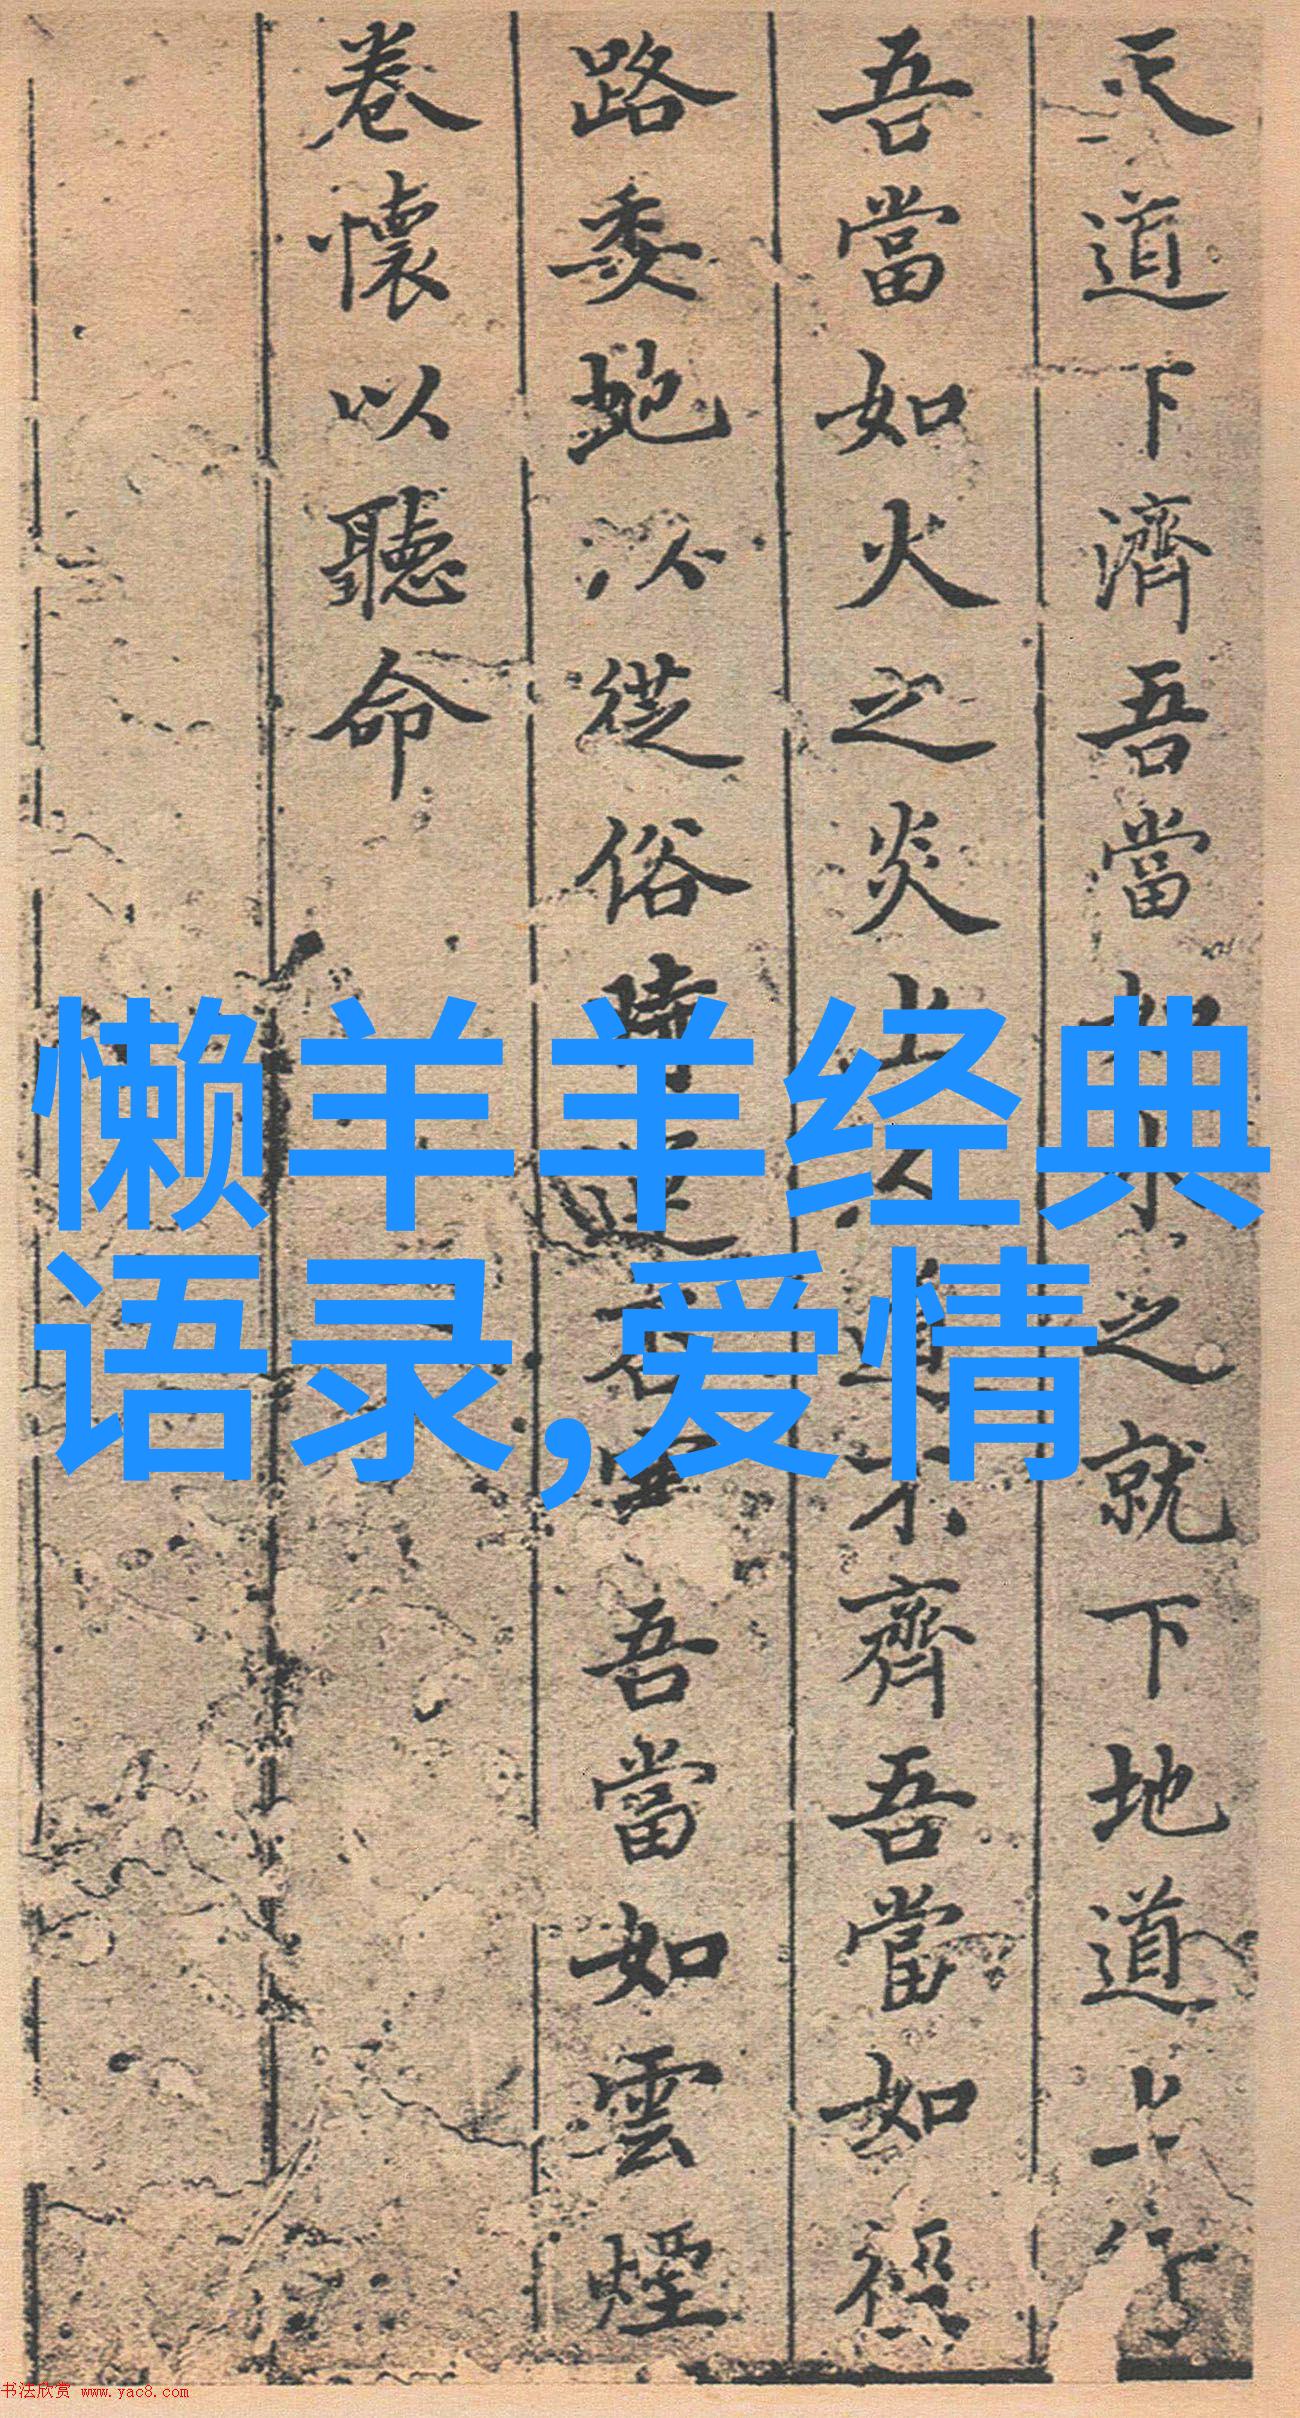 天道下濟吾當如水之就下地道上行
吾當如火之炎上人道不齊吾當如徑
路委虵以從俗時運吾當如雲煙
卷懷以聽命
懒羊羊经典
语录,爱情
书法欣赏 www.yac8.com